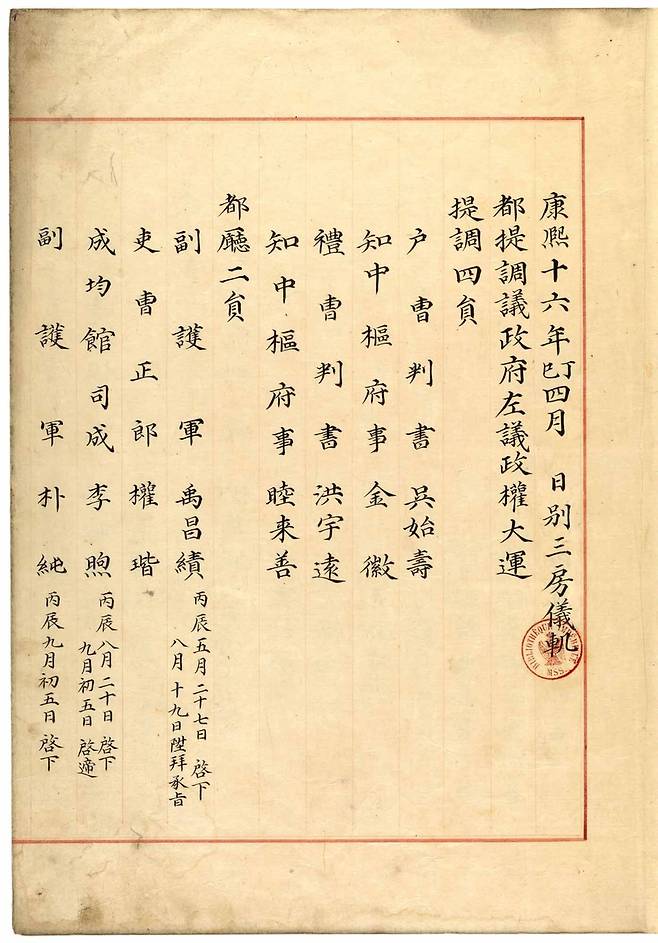 康熙十六年丁巳四月 日別三房儀軌
都提調議政府左議政權大運
提調四員
户曹判書吳始壽
知中樞府事金徽
禮曹判書洪宇遠
知中樞府事睦来善
都廳二員
副護軍禹昌績丙辰五月二十七日 啓下
八月十九日陞拜承旨
吏曹正郎權瑎
成均館司成李煦丙辰八月二十日 啓下
九月初五日 啓遞
副護軍朴純丙辰九月初五日 啓下
BIBLIOTHÈQUE IMPÉRIALE
MSS.